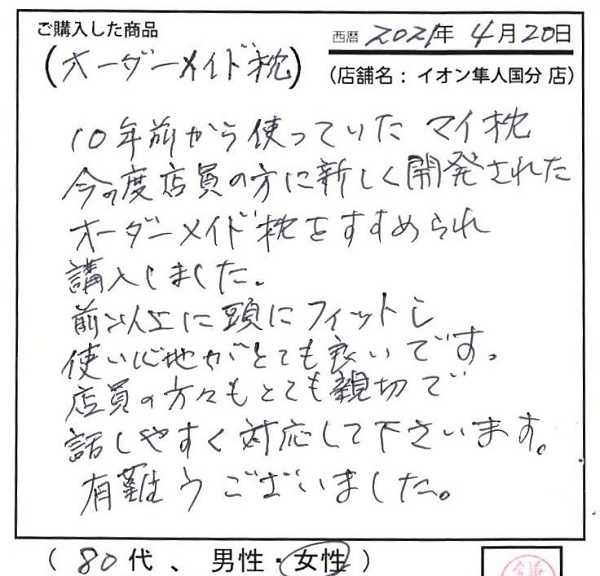 ご購入した商品
西暦 2021年 4月20日
(オーダーメイド枕)
(店舗名：イオン隼人国分 店)
10年前から使っていた マイ枕
今の度店員の方に新しく開発された
オーダーメイド枕をすすめられ
講入しました。
前以上に頭にフィットし
使い心地がとても良いです。
店員の方々もとても親切で
話しやすく対応して下さいます。
有難うございました。
(80代、男性・女性)